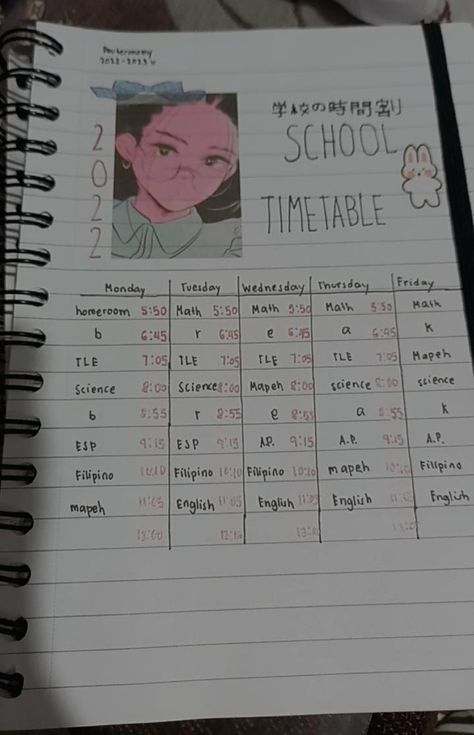 Deuteronomy
2022-2023
学校の時間割
SCHOOL
TIMETABLE
2
0
2
2
Monday Tuesday Wednesday Thursday Friday
homeroom 5:50 Math 5:50 Math 5:50 Math 5:50 Math
b 6:45 r 6:45 e 6:45 a 6:45 k
TLE 7:05 TLE 7:05 TLE 7:05 TLE 7:05 Mapeh
Science 8:00 Science 8:00 Mapeh 8:00 science 8:00 science
b 8:55 r 8:55 e 8:55 a 8:55 k
ESP 9:15 ESP 9:15 A.P. 9:15 A.P. 9:15 A.P.
Filipino 10:10 Filipino 10:10 Filipino 10:10 mapeh 10:10 Filipino
mapeh 11:05 English 11:05 English 11:05 English 11:05 English